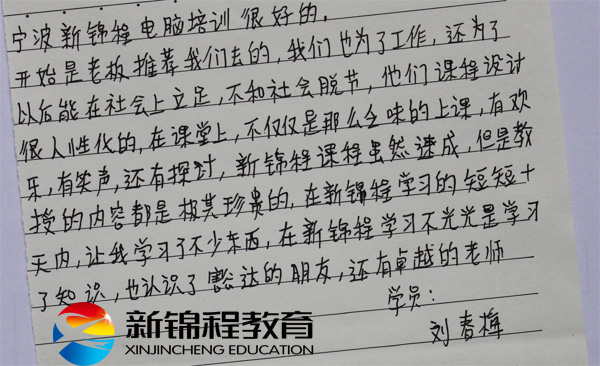 宁波新锦程电脑培训很好的,
开始是老板推荐我们去的,我们也为了工作,还为了
以后能在社会上立足,不和社会脱节,他们课程设计
很人性化的,在课堂上,不仅仅是那么乏味的上课,有欢
乐,有笑声,还有探讨,新锦程课程虽然速成,但是教
授的内容都是极其珍贵的,在新锦程学习的短短十
天内,让我学习了不少东西,在新锦程学习不光光是学习
了知识,也认识了豁达的朋友,还有卓越的老师
学员:
刘春梅
新锦程教育
XINJINCHENG EDUCATION